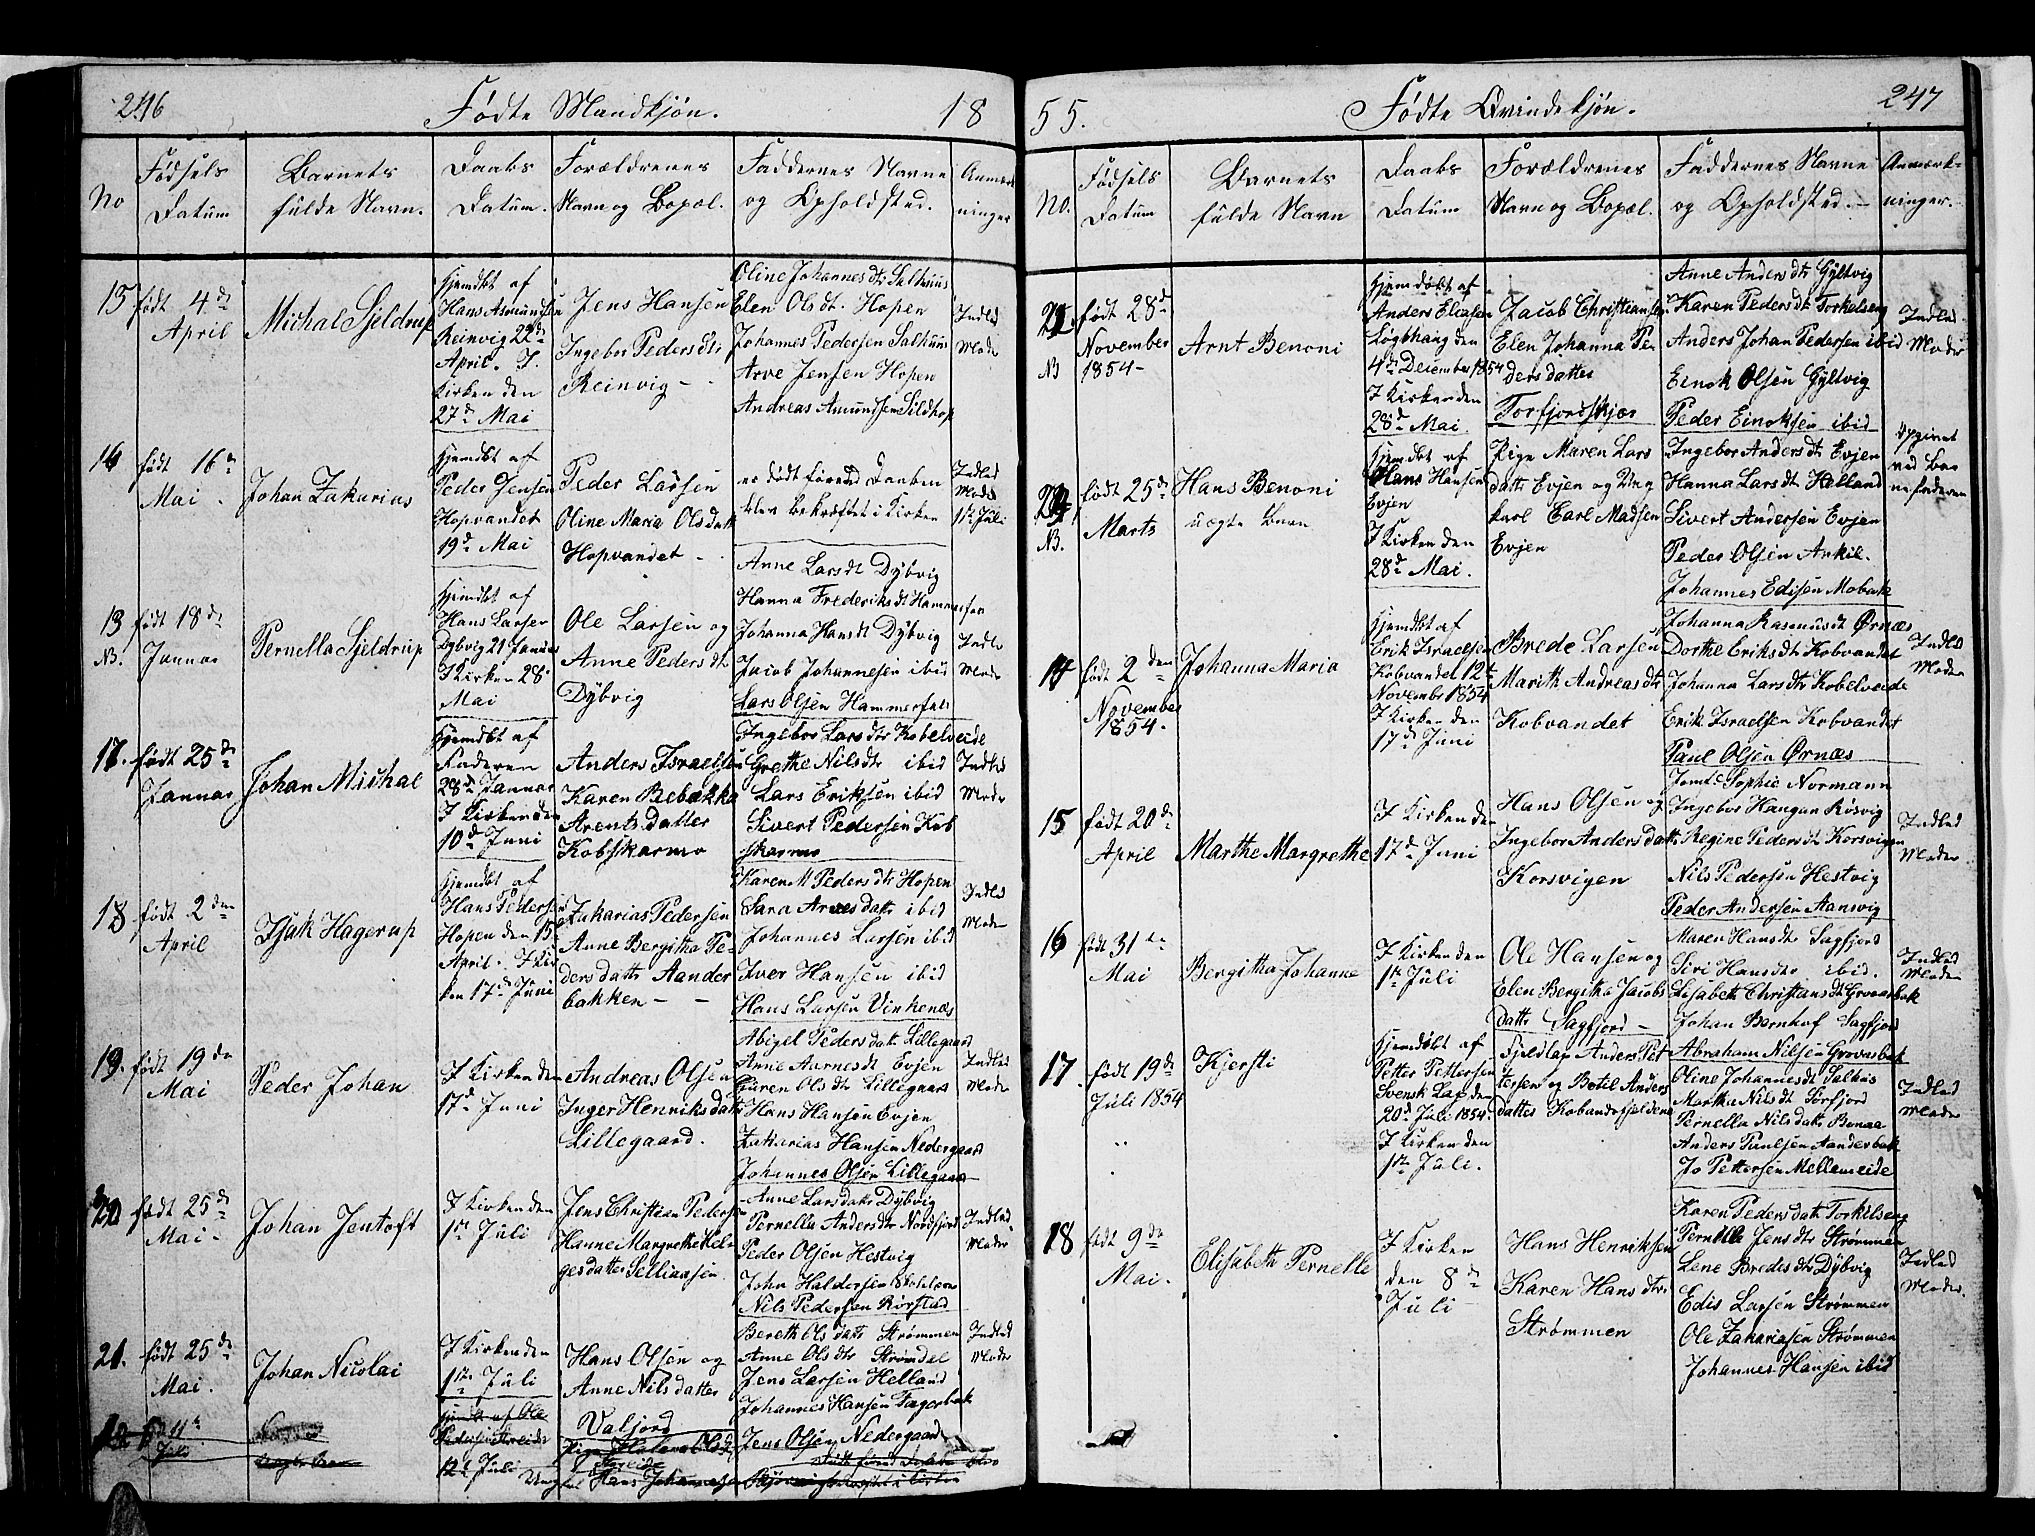 246 Fødte Mandkjøn. 18
No
Fødsels
Datum
Barnets
fulde Navn.
Daabs
Datum.
Forældrenes
Navn og Bopæl.
Faddernes Navne
og Opholdsted.
Anmærk
ninger
15
født 4de
April
Michal Sjeldrup
hjemdbt af
Hans Asmundsen
Reinvig 22de
April. I
Kirken den
27de Mai
Jens Hansen
Ingebor Pedersdtr
Reinvig -
Oline Johannesdtr Saltuus
Elen Olsdt. Hopen
Johannes Pedersen Saltuus
Arve Jensen Hopen
Andreas Amundsen Sildhop
Indled
Mode
16
født 16de
Mai.
Johan Zakarias
hjemdbt af
Peder Jensen
Hopvandet
19de Mai
Peder Larsen
Oline Maria Olsdatt
Hopvandet -
er dødt førend Daaben
blev bekræftet i Kirken
Indled
Mode
1ste Juli
13
NB.
født 18de
Januar
Pernella Sjeldrup
hjemdbt af
Hans Larsen
Dybvig 21 Januar
I Kirken 28de
Mai
Ole Larsen og
Anne Pedersdt
Dybvig
Anne Larsdt Dybvig
Hanna Frederiksdt Hammerfal
Johanna Hansdt Dybvig
Jacob Johannesen ibid
Lars Olsen Hammerfal
Indle
Mode
17.
født 25de
Januar
Johan Michal
hjemdbt af
Faderen
28de Januar
I Kirken den
10de Juni
Anders Israelsen
Karen Rebækka
Arentsdatter
Kobskarmo
Ingebor Larsdtr Kobelveide
Grethe Nilsdtr ibid
Lars Eriksen ibid
Sivert Pedersen Kob
skarmo
Indled
Mode
18
født 2den
April
Isak Hagerup
hjemdbt af
Hans Pedersen
Hopen den 15de
April. I Kir
ken 17de Juni
Zakarias Pedersen
Anne Bergitha Pe-
dersdattr Aander
bakken -
Karen M Pedersdtr Hopen
Sara Arvesdatt ibid
Johannes Larsen ibid
Iver Hansen ibid
Hans Larsen Virkenæs
Indled
Mode
19.
født 19de
Mai
Peder Johan
I Kirken den
17de Juni
Andreas Olsen
Inger Henriksdatt
Lillegaard.
Abigel Pedersdatt Lillegaard
Anne Aarnesdt Evjen
Guren Olsdtr Lillegaard
Hans Hansen Evjen
Zakarias Hansen Nedergaard
Johannes Olsen Lillegaard
Indled
Mode
20
født 25de
Mai.
Johan Jentoft
I Kirken den
1ste Juli
Jens Christian Pedersen
Hanne Margrethe Hel-
gesdatter Selliaasen
Anne Larsdatt Dybvig
Pernella Andersdtr Nordfjord
Peder Olsen Hestvig
John Haldorsen Skolelærer
Nils Pedersen Rørstad
Indled.
Moder
21.
født 25de
Mai.
Johan Nicolai
I Kirken den
1ste Juli
Hans Olsen og
Anne Nilsdatter
Valjord
Bereth Olsdatt Strømmen
Anne Olsdtr Strømdal
Jens Larsen Helland
Johannes Hansen Fagerbak
Jens Olsen Nedergaard
Indled
Mode
hjemdbt af Ole
Pedersen
12te Juli
Hans Johannesen
55. Fødte Qvindekjøn. 247
No.
Fødsels
Datum
Barnets
fulde Navn
Daabs
Datum
Forældrenes
Navn og Bopæl.
Faddernes Navne
og Opholdsted.-
Anmærk-
ninger.
NB
født 28de
November
1854-
Arnt Benoni
hjemdøbt af
Anders Eliasen
Løgthaug den
4de December 1854
I Kirken den
28de Mai
Jacob Christiansen
Elen Johanna Pe
dersdatter
Torfjordskjær
Anne Andersdtr Gyltvig
Karen Pedersdt Torkelseng
Anders Johan Pedersen ibid
Einok Olsen Gyltvig
Peder Einoksen ibid
Indled
Moder
NB.
født 25de
Marts
Hans Benoni
uægte Barn
hjemdbt af
Hans Hansen
Evjen
I Kirken den
28de Mai.
Pige Maren Lars
datt Evjen og Ung
karl Earl Madsen
Evjen
Ingebor Andersdt Evjen
Hanna Larsdt Helland
Sivert Andersen Evjen
Peder Olsen Ankil.
Johannes Edisen Mobak
opgivet
ved Bar
nefaderen
14
født 2den
November
1854.
Johanna Maria
hjemdbt af
Erik Israelsen
Kobvandet 12te
November 1854
I Kirken den
17de Juni
Brede Larsen
Marith Andreasdtr
Kobvandet
Johanna Rasmusdt Ørnæs
Dorthe Eriksdt Kobvandet
Johanna Larsdtr Kobelveide
Erik Israelsen Kobvandet
Paul Olsen Ørnæs
Indled
Moder
15
født 20de
April
Marthe Margrethe
I Kirken den
17de Juni
Hans Olsen og
Ingebor Andersdatt
Korsvigen
Jomfr Sophie Normann
Ingebor Haugan Røsvig
Regine Pedersdt Korsvigen
Nils Pedersen Hestvig
Peder Andersen Aansvig
Indled
Moder
16
født 31te
Mai
Bergitha Johanne
I Kirken den
1ste Juli
Ole Hansen og
Elen Bergitha Jacobs
datter Sagfjord -
Maren Hansdtr Sagfjord
Siri Hansdtr ibid.
Elisabeth Christiansdt Grovasbak
Johan Bernhof Sagfjord
Abraham Nilsen Grovasbak
Indled
Moder
17
født 19de
Juli 1854
Kjersti
hjemdøbt af
Petter Pettersen
Svensk Lap den
20de Juli 1854.
I Kirken den
1ste Juli.
Fjeldlap Anders Pet
tersen og Botil Anders
datter Kobvandsfjeldene
Oline Johannesdt Salhus
Martha Nilsdt Torfjord
Pernella Nilsdatt Bonaa
Anders Paulsen Aanderbak
Jo Pettersen Mellemeide
Indled
Moder
18
født 9de
Mai.
Elisabeth Pernelle
I Kirken
den 8de
Juli
Hans Henriksen
Karen Hansdtr
Strømmen
Karen Pedersdatt Torkilseng
Pernelle Jensdtr Strømmen
Lene Bredesdtr Dybvig
Edis Larsen Strømmen
Ole Zakariasen Strømmen
Johannes Hansen ibid
Indled
Moder.